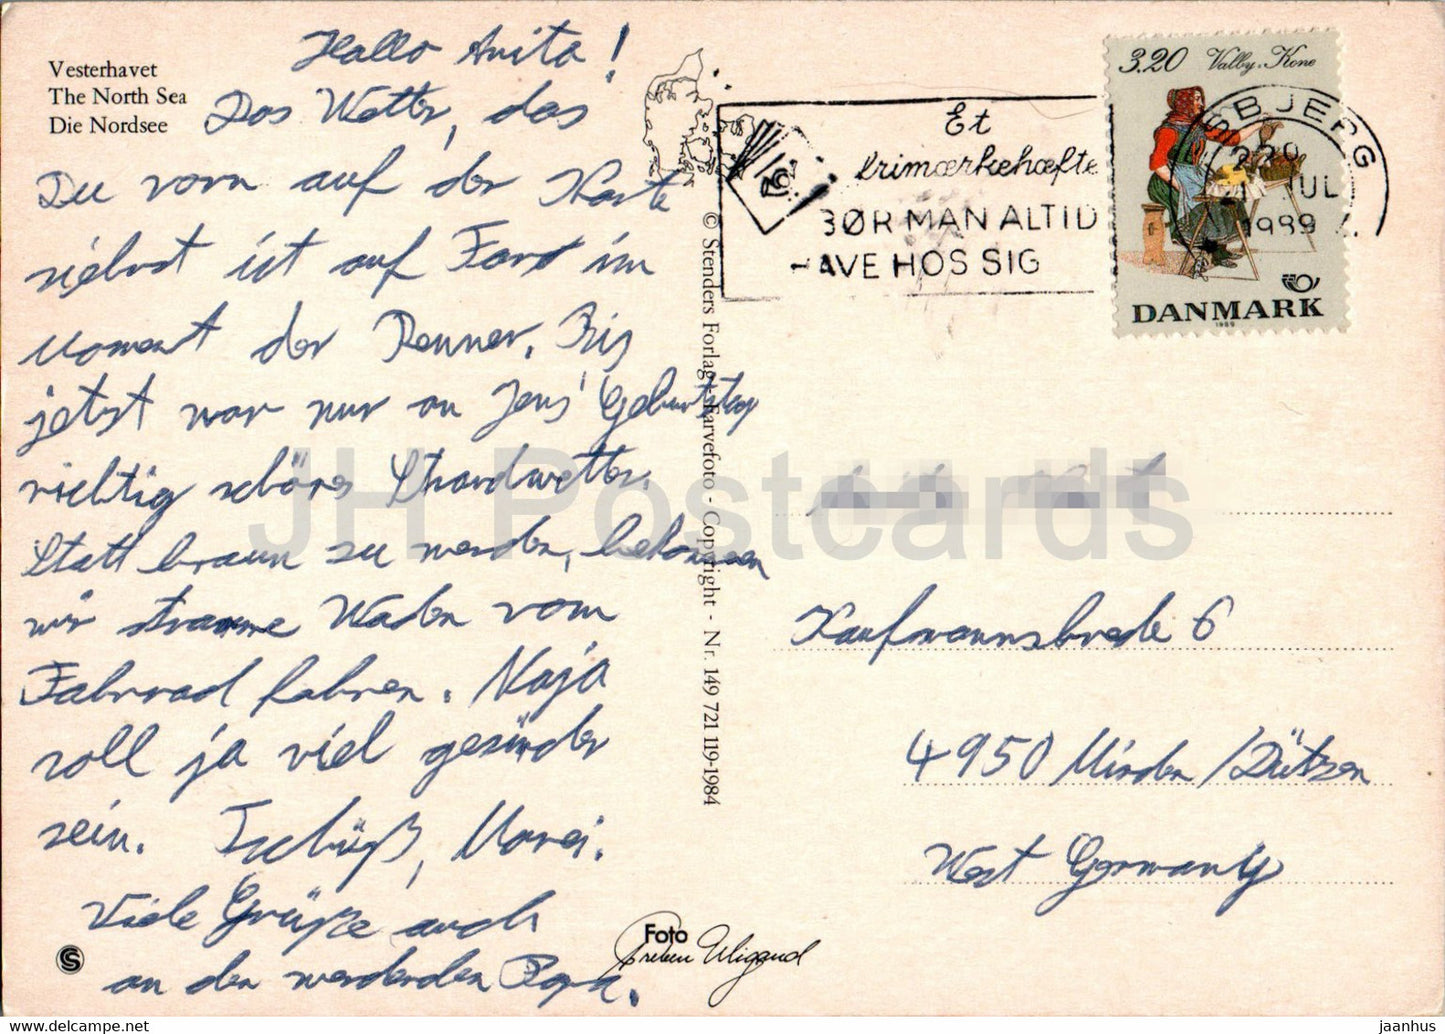 Vesterhavet
The North Sea
Die Nordsee
Hallo Anita!
Das Wetter, das
Du vorn auf der Karte
siehst ist auf Fanø im
Moment der Renner. Bis
jetzt war nur an Jens' Geburtstag
richtig schönes Strandwetter.
Statt braun zu werden, bekommen
wir stramme Waden vom
Fahrrad fahren. Naja
soll ja viel gesünder
sein. Tschüß, Marei.
Viele Grüße auch
an den werdenden Papa.
© Stenders Forlag - Farvefoto - Copyright - Nr. 149 721 119-1984
Foto
Preben Wigand
Et
frimærkehæfte
BØR MAN ALTID
HAVE HOS SIG
3.20 Valby-Kone
SBJERG
JUL
1989
DANMARK
1989
Kaufmannsbrede 6
4950 Minden/Dützen
West Germany
JH Postcards
jaanhus @ delcampe.net